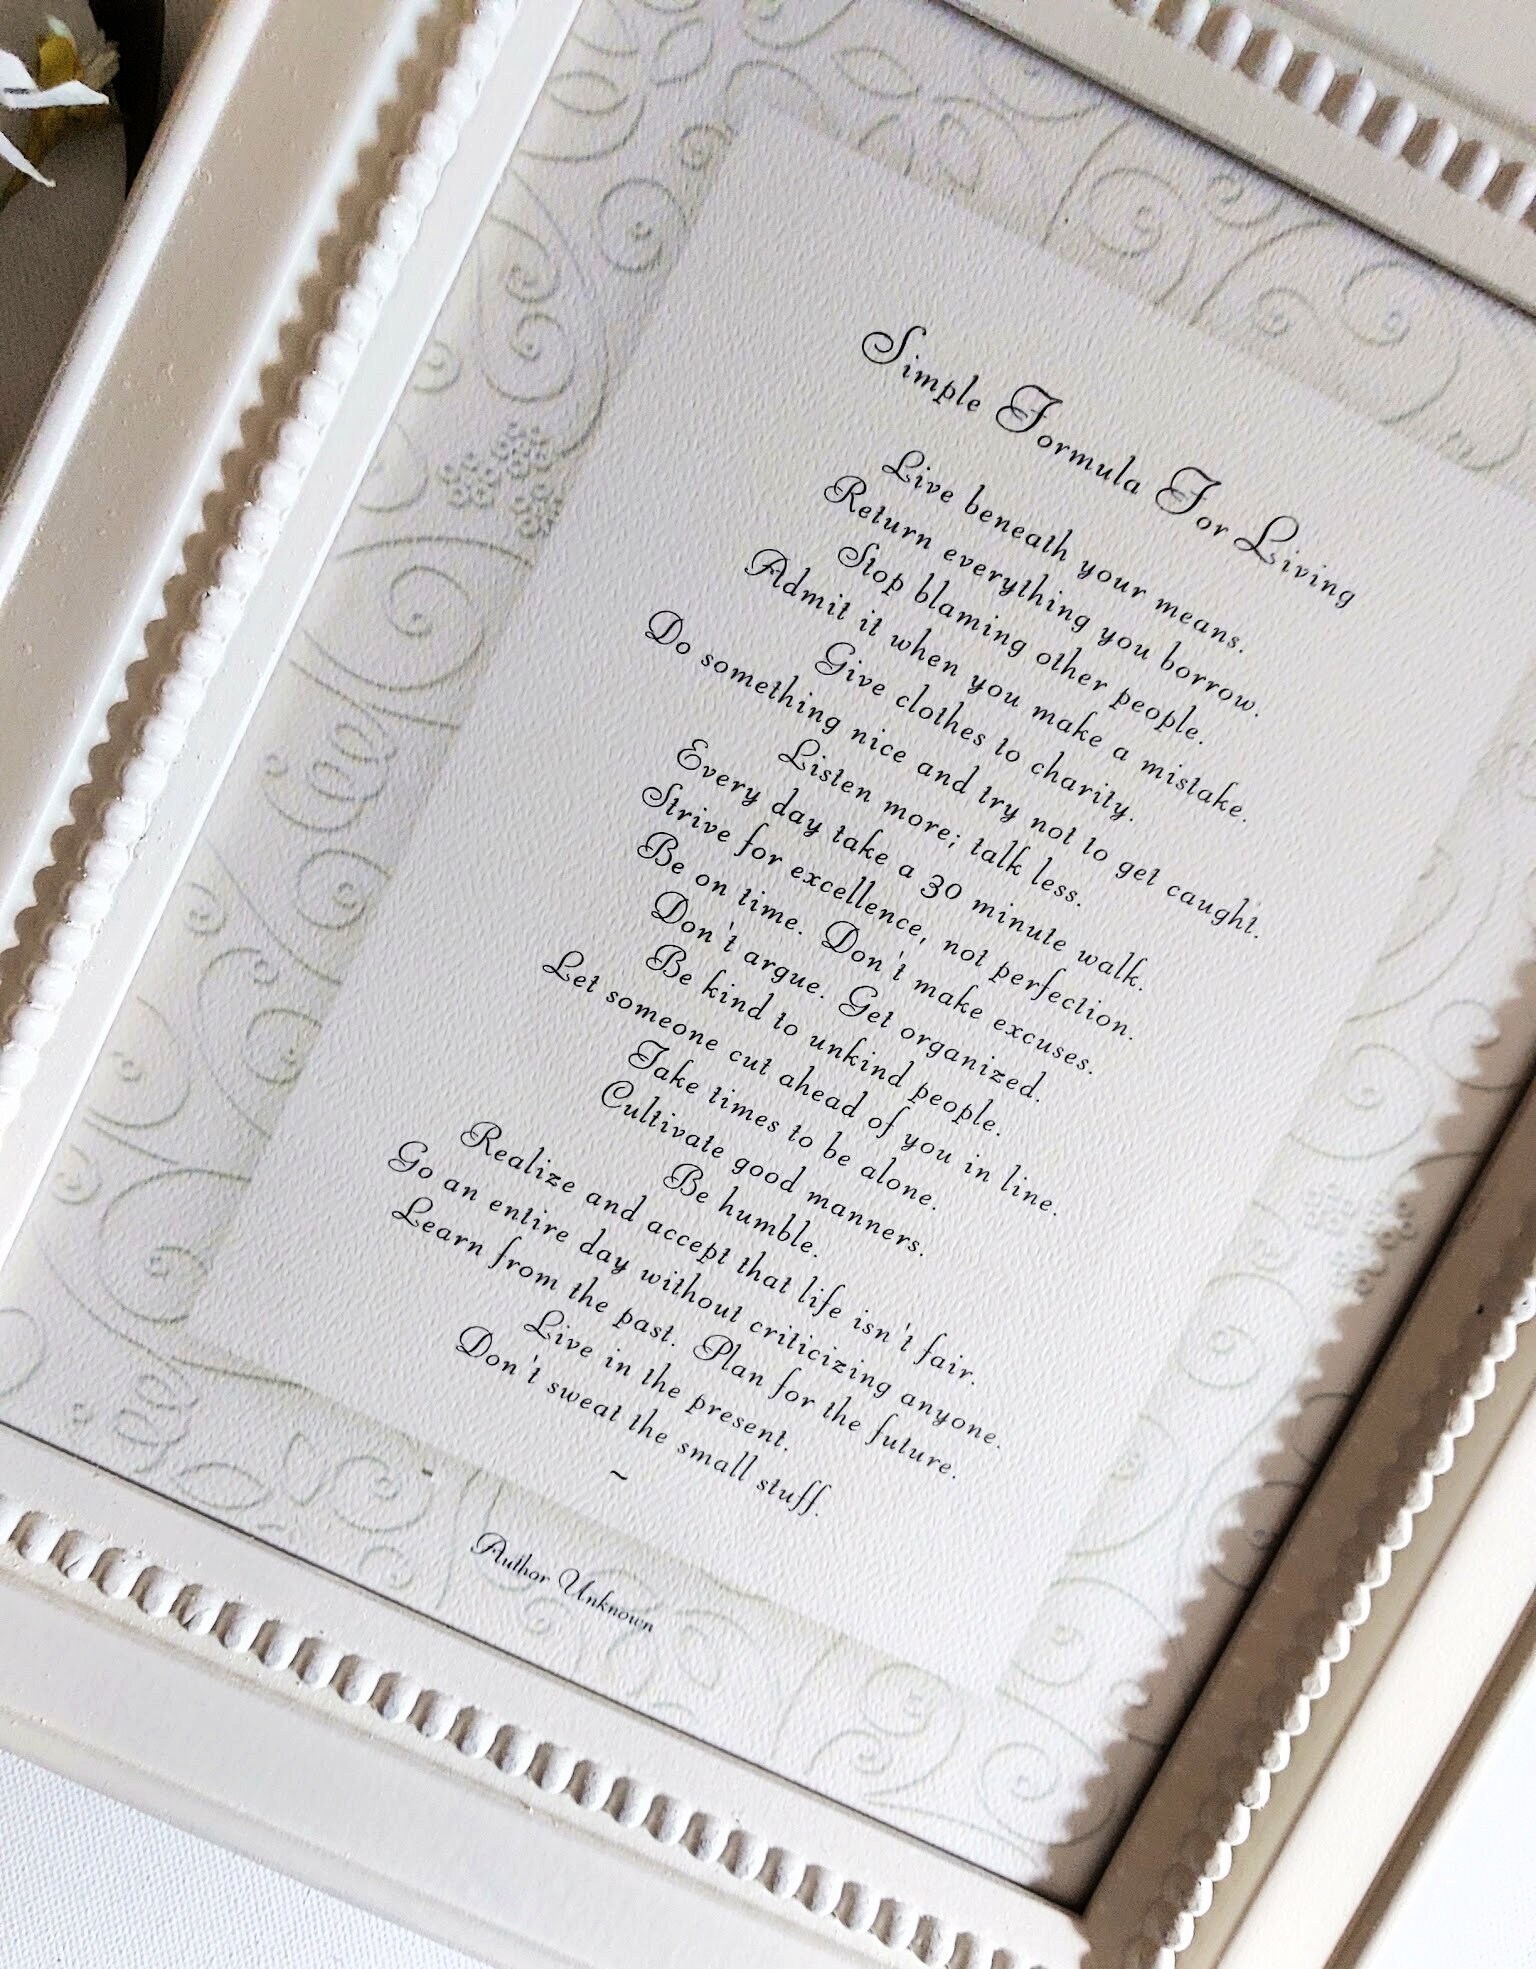 Simple Formula For Living
Live beneath your means.
Return everything you borrow.
Stop blaming other people.
Admit it when you make a mistake.
Give clothes to charity.
Do something nice and try not to get caught.
Listen more; talk less.
Every day take a 30 minute walk.
Strive for excellence, not perfection.
Be on time. Don't make excuses.
Don't argue. Get organized.
Be kind to unkind people.
Let someone cut ahead of you in line.
Take times to be alone.
Cultivate good manners.
Be humble.
Realize and accept that life isn't fair.
Go an entire day without criticizing anyone.
Learn from the past. Plan for the future.
Live in the present.
Don't sweat the small stuff.
~
Author Unknown